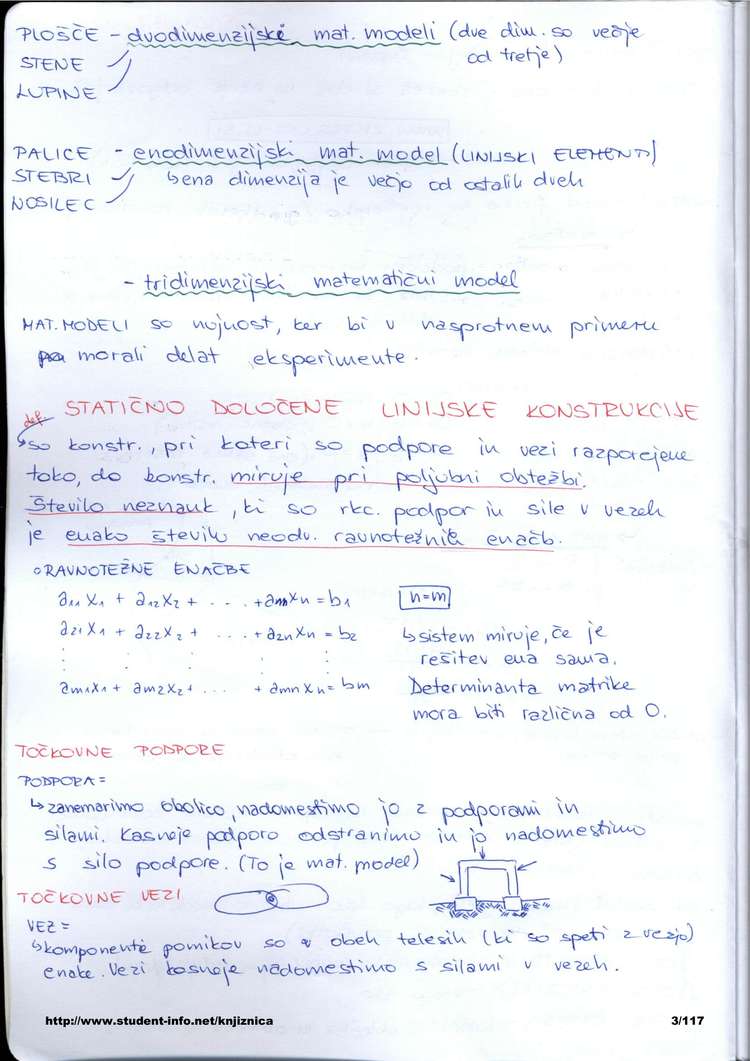 PLOŠČE - dvodimenzijski mat. modeli (dve dim. so večje
STENE od tretje)
LUPINE
PALICE - enodimenzijski mat. model (LINIJSKI ELEMENTI)
STEBRI ↳ ena dimenzija je večja od ostalih dveh
NOSILEC
- tridimenzijski matematični model
MAT. MODELI so nujnost, ker bi v nasprotnem primeru
morali delat eksperimente.
def STATIČNO DOLOČENE LINIJSKE KONSTRUKCIJE
↳ so konstr., pri kateri so podpore in vezi razporejene
tako, da konstr. miruje pri poljubni obtežbi.
Število neznank, ki so rkc. podpor in sile v vezeh
je enako številu neodv. ravnotežnih enačb.
○ RAVNOTEŽNE ENAČBE
a11 x1 + a12 x2 + . . . + a1n xn = b1 n=m
a21 x1 + a22 x2 + . . . + a2n xn = b2 ↳ sistem miruje, če je
rešitev ena sama.
am1 x1 + am2 x2 + . . . + amn xn = bm Determinanta matrike
mora biti različna od 0.
TOČKOVNE PODPORE
PODPORA =
↳ zanemarimo okolico, nadomestimo jo z podporami in
silami. Kasneje podporo odstranimo in jo nadomestimo
s silo podpore. (To je mat. model)
TOČKOVNE VEZI
VEZ =
↳ komponente pomikov so v obeh telesih (ki so speti z vezjo)
enake. Vezi kasneje nadomestimo s silami v vezeh.
http://www.student-info.net/knjiznica 3/117